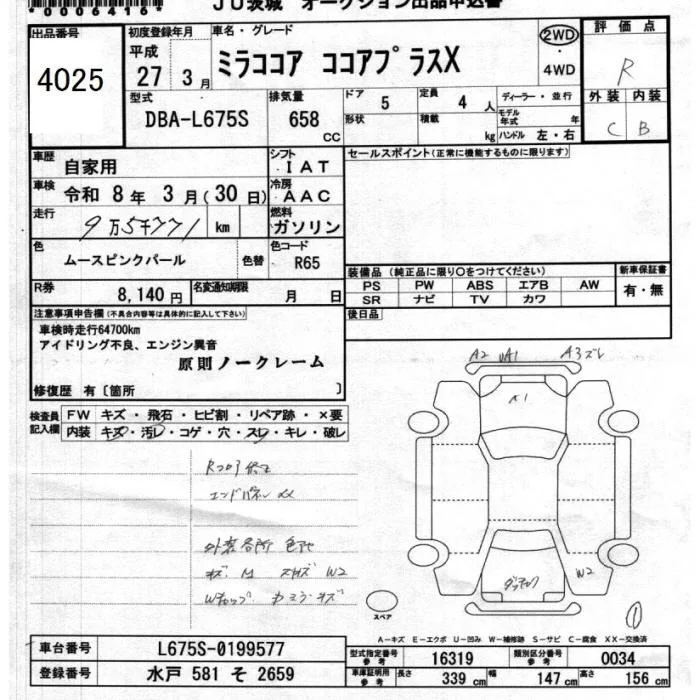 *0006416*
JU茨城 オークション出品申込書
出品番号
4025
初度登録年月
平成
27 3 月
車名・グレード
ミラココア ココアプラスX
2WD
・
4WD
評価点
R
外装 内装
C B
型式
DBA-L675S
排気量
658
CC
ドア
5
定員
4 人
ディーラー・並行
形状
積載
kg
モデル年式 年
ハンドル 左・右
車歴
自家用
シフト
IAT
セールスポイント(正常に機能するものに限ります)
車検
令和 8 年 3 月 (30 日)
冷房
AAC
走行
9万54771 km
燃料
ガソリン
色
ムースピンクパール
色替
色コード
R65
装備品 (純正品に限り○をつけてください)
新車保証書
PS PW ABS エアB AW
SR ナビ TV カワ
有・無
R券
8,140 円
名変通知期限
月 日
後日品
注意事項申告欄(不具合内容等は具体的に記入して下さい)
車検時走行64700km
アイドリング不良、エンジン異音
原則ノークレーム
修復歴 有〔箇所 〕
A2 UA1 A3ズレ
A1
検査員記入欄
FW キズ・飛石・ヒビ割・リペア跡・×要
内装 キズ・汚レ・コゲ・穴・スレ・キレ・破レ
エンドパネル XX
外装各所 色アセ
キズ M W2
W2
スペア
①
A-キズ E-エクボ U-凹み W-補修跡 S-サビ C-腐食 XX-交換済
車台番号
L675S-0199577
登録番号
水戸 581 そ 2659
型式指定番号
参考
16319
類別区分番号
参考
0034
車庫証明用
参考
長さ 339 cm 幅 147 cm 高さ 156 cm